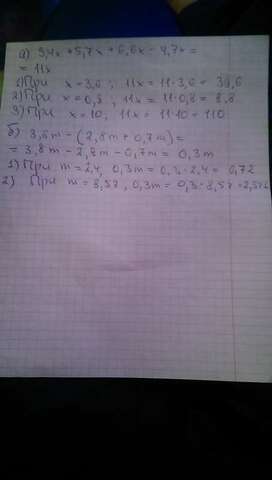 а) 3,4x + 5,7x + 6,6x - 4,7x =
= 11x
1) При x = 3,6 ; 11x = 11·3,6 = 39,6
2) При x = 0,8 ; 11x = 11·0,8 = 8,8
3) При x = 10, 11x = 11·10 = 110
б) 3,8m - (2,8m + 0,7m) =
= 3,8m - 2,8m - 0,7m = 0,3m
1) При m = 2,4, 0,3m = 0,3·2,4 = 0,72
2) При m = 8,57, 0,3m = 0,3·8,57 =